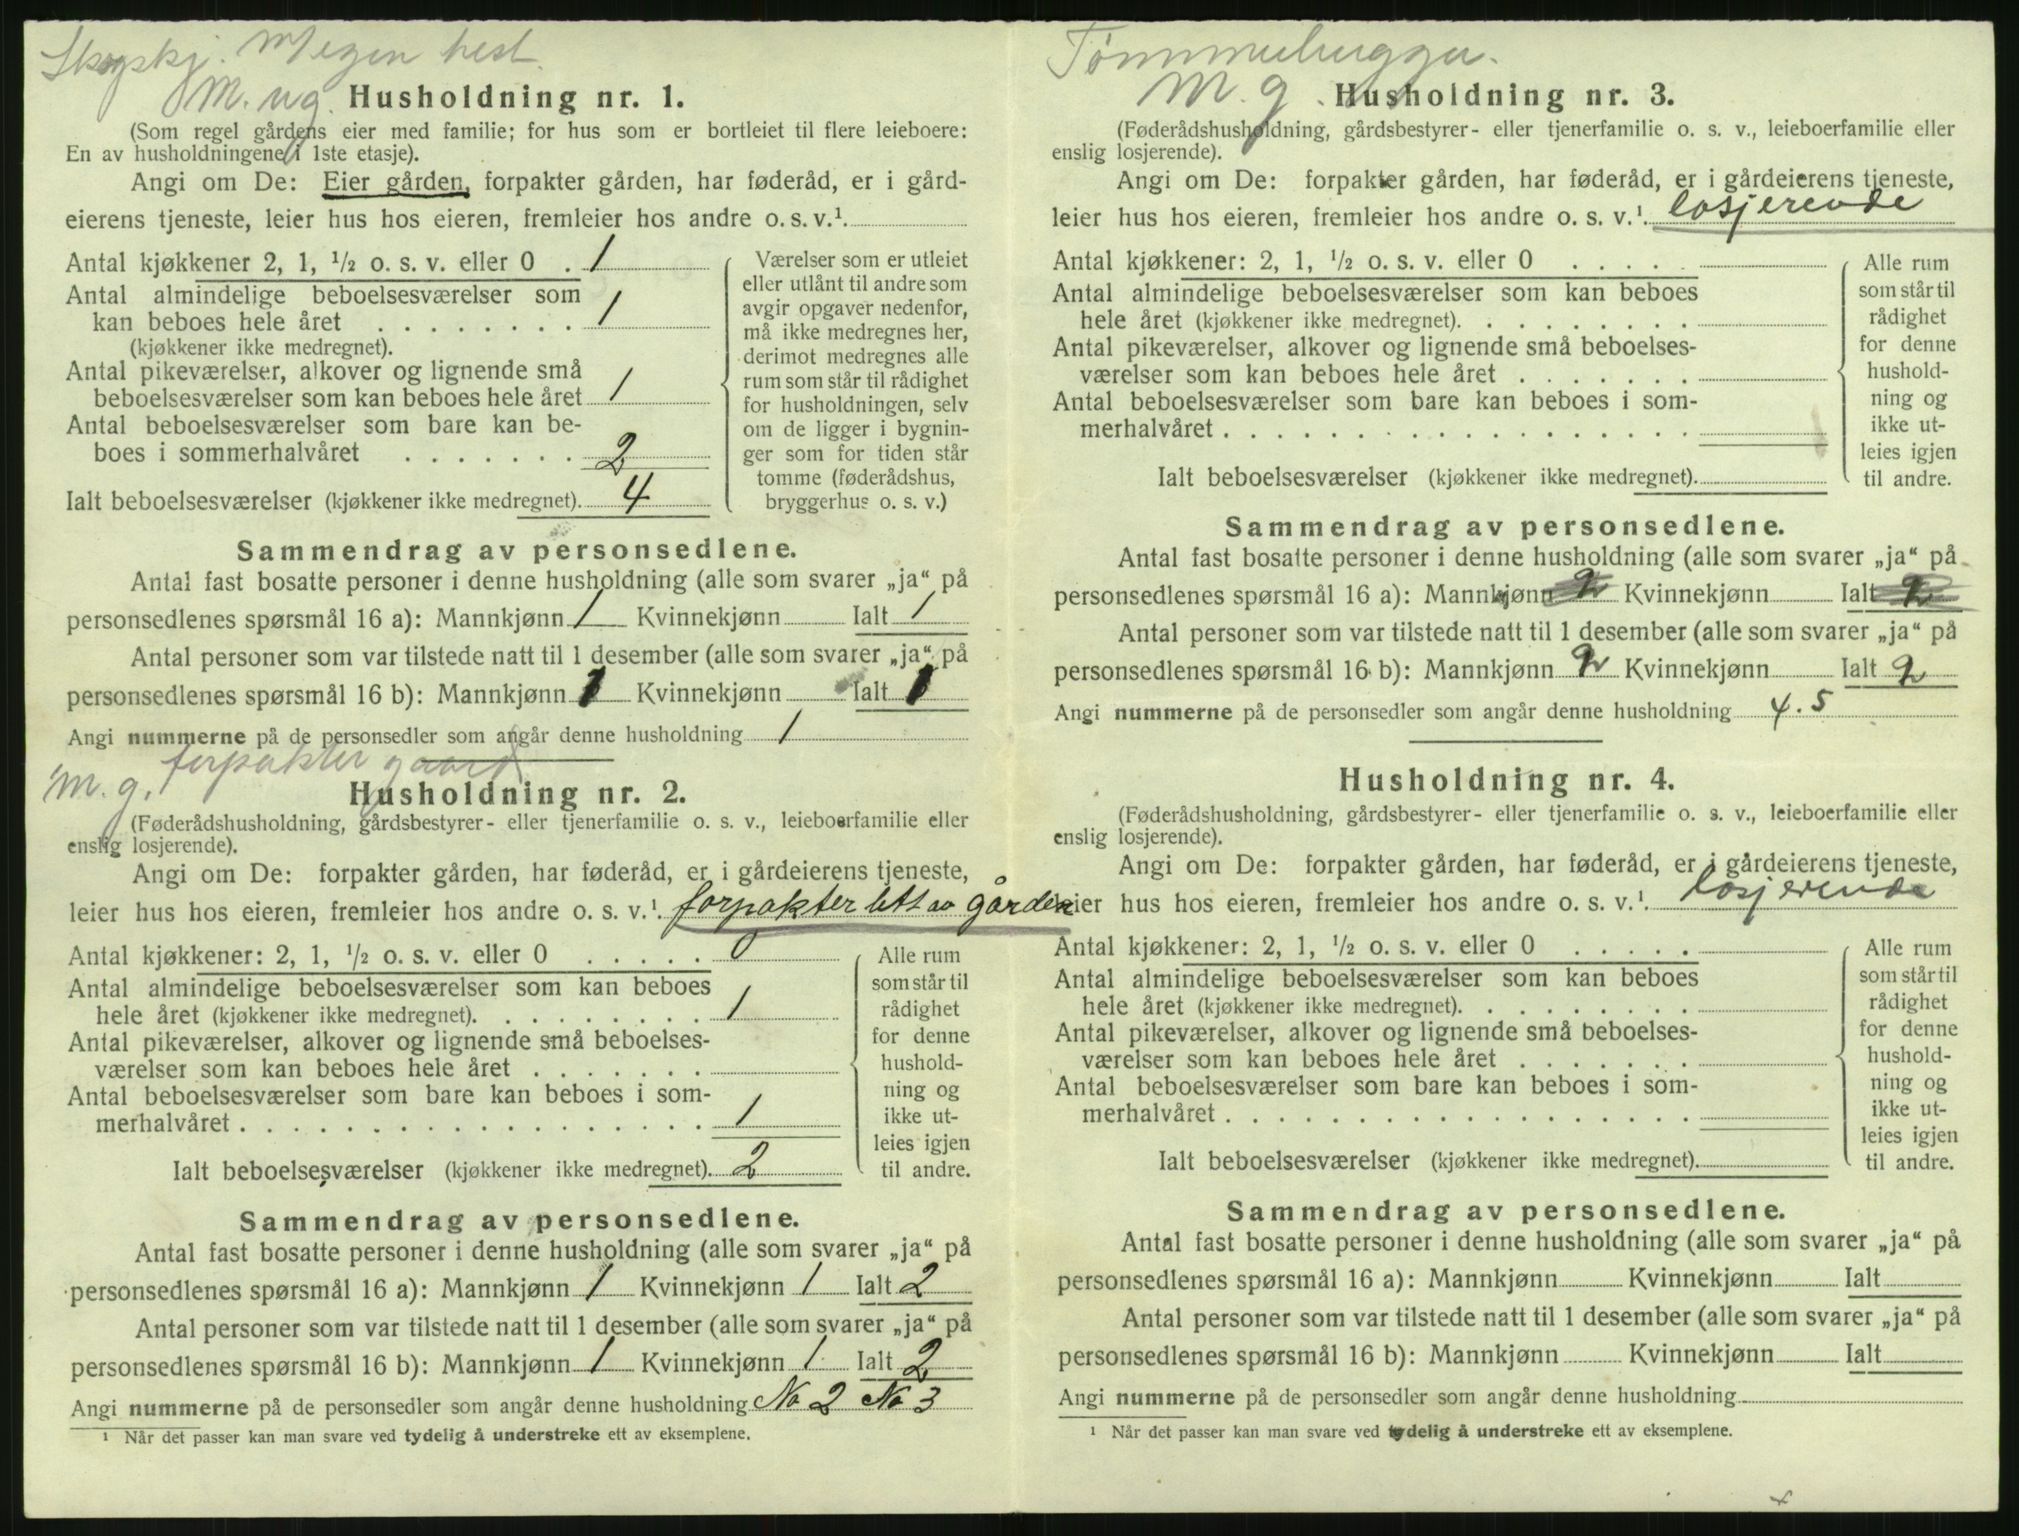 Skogskj. M egen hest.
M. ug. Husholdning nr. 1.
(Som regel gårdens eier med familie; for hus som er bortleiet til flere leieboere:
En av husholdningene i 1ste etasje).
Angi om De: Eier gården, forpakter gården, har føderåd, er i gård-
eierens tjeneste, leier hus hos eieren, fremleier hos andre o. s. v.¹.
Antal kjøkkener 2, 1, ½ o. s. v. eller 0 . 1
Antal almindelige beboelsesværelser som
kan beboes hele året . . . . . . . . 1
(kjøkkener ikke medregnet).
Antal pikeværelser, alkover og lignende små
beboelsesværelser som kan beboes hele året 1
Antal beboelsesværelser som bare kan be-
boes i sommerhalvåret . . . . . . . 2
Ialt beboelsesværelser (kjøkkener ikke medregnet). 4
Værelser som er utleiet
eller utlånt til andre som
avgir opgaver nedenfor,
må ikke medregnes her,
derimot medregnes alle
rum som står til rådighet
for husholdningen, selv
om de ligger i bygnin-
ger som for tiden står
tomme (føderådshus,
bryggerhus o. s. v.)
Sammendrag av personsedlene.
Antal fast bosatte personer i denne husholdning (alle som svarer „ja“ på
personsedlenes spørsmål 16 a): Mannkjønn 1 Kvinnekjønn Ialt 1
Antal personer som var tilstede natt til 1 desember (alle som svarer „ja“ på
personsedlenes spørsmål 16 b): Mannkjønn 1 Kvinnekjønn Ialt 1
Angi nummerne på de personsedler som angår denne husholdning 1
M. g. forpakter gaard
Husholdning nr. 2.
(Føderådshusholdning, gårdsbestyrer- eller tjenerfamilie o. s. v., leieboerfamilie eller
enslig losjerende).
Angi om De: forpakter gården, har føderåd, er i gårdeierens tjeneste,
leier hus hos eieren, fremleier hos andre o. s. v.¹. forpakter litt av gården
Antal kjøkkener: 2, 1, ½ o. s. v. eller 0 . . . . . 0
Antal almindelige beboelsesværelser som kan beboes
hele året (kjøkkener ikke medregnet). . . . . . . . . 1
Antal pikeværelser, alkover og lignende små beboelses-
værelser som kan beboes hele året . . . . . . .
Antal beboelsesværelser som bare kan beboes i som-
merhalvåret . . . . . . . . . . . . . . . . . . 1
Ialt beboelsesværelser (kjøkkener ikke medregnet). 2
Alle rum
som står til
rådighet
for denne
hushold-
ning og
ikke ut-
leies igjen
til andre.
Sammendrag av personsedlene.
Antal fast bosatte personer i denne husholdning (alle som svarer „ja“ på
personsedlenes spørsmål 16 a): Mannkjønn 1 Kvinnekjønn 1 Ialt 2
Antal personer som var tilstede natt til 1 desember (alle som svarer „ja“ på
personsedlenes spørsmål 16 b): Mannkjønn 1 Kvinnekjønn 1 Ialt 2
Angi nummerne på de personsedler som angår denne husholdning No 2 No 3
¹ Når det passer kan man svare ved tydelig å understreke ett av eksemplene.
Tømmerhugger.
M. g. Husholdning nr. 3.
(Føderådshusholdning, gårdsbestyrer- eller tjenerfamilie o. s. v., leieboerfamilie eller
enslig losjerende).
Angi om De: forpakter gården, har føderåd, er i gårdeierens tjeneste,
leier hus hos eieren, fremleier hos andre o. s. v.¹. losjerende
Antal kjøkkener: 2, 1, ½ o. s. v. eller 0 . . . . .
Antal almindelige beboelsesværelser som kan beboes
hele året (kjøkkener ikke medregnet). . . . . . . . .
Antal pikeværelser, alkover og lignende små beboelses-
værelser som kan beboes hele året . . . . . . .
Antal beboelsesværelser som bare kan beboes i som-
merhalvåret . . . . . . . . . . . . . . . . . .
Ialt beboelsesværelser (kjøkkener ikke medregnet).
Alle rum
som står til
rådighet
for denne
hushold-
ning og
ikke ut-
leies igjen
til andre.
Sammendrag av personsedlene.
Antal fast bosatte personer i denne husholdning (alle som svarer „ja“ på
personsedlenes spørsmål 16 a): Mannkjønn 2 Kvinnekjønn Ialt 2
Antal personer som var tilstede natt til 1 desember (alle som svarer „ja“ på
personsedlenes spørsmål 16 b): Mannkjønn 2 Kvinnekjønn Ialt 2
Angi nummerne på de personsedler som angår denne husholdning 4. 5
Husholdning nr. 4.
(Føderådshusholdning, gårdsbestyrer- eller tjenerfamilie o. s. v., leieboerfamilie eller
enslig losjerende).
Angi om De: forpakter gården, har føderåd, er i gårdeierens tjeneste,
leier hus hos eieren, fremleier hos andre o. s. v.¹. losjerende
Antal kjøkkener: 2, 1, ½ o. s. v. eller 0 . . . . .
Antal almindelige beboelsesværelser som kan beboes
hele året (kjøkkener ikke medregnet). . . . . . . . .
Antal pikeværelser, alkover og lignende små beboelses-
værelser som kan beboes hele året . . . . . . .
Antal beboelsesværelser som bare kan beboes i som-
merhalvåret . . . . . . . . . . . . . . . . . .
Ialt beboelsesværelser (kjøkkener ikke medregnet).
Alle rum
som står til
rådighet
for denne
hushold-
ning og
ikke ut-
leies igjen
til andre.
Sammendrag av personsedlene.
Antal fast bosatte personer i denne husholdning (alle som svarer „ja“ på
personsedlenes spørsmål 16 a): Mannkjønn Kvinnekjønn Ialt
Antal personer som var tilstede natt til 1 desember (alle som svarer „ja“ på
personsedlenes spørsmål 16 b): Mannkjønn Kvinnekjønn Ialt
Angi nummerne på de personsedler som angår denne husholdning
¹ Når det passer kan man svare ved tydelig å understreke ett av eksemplene.